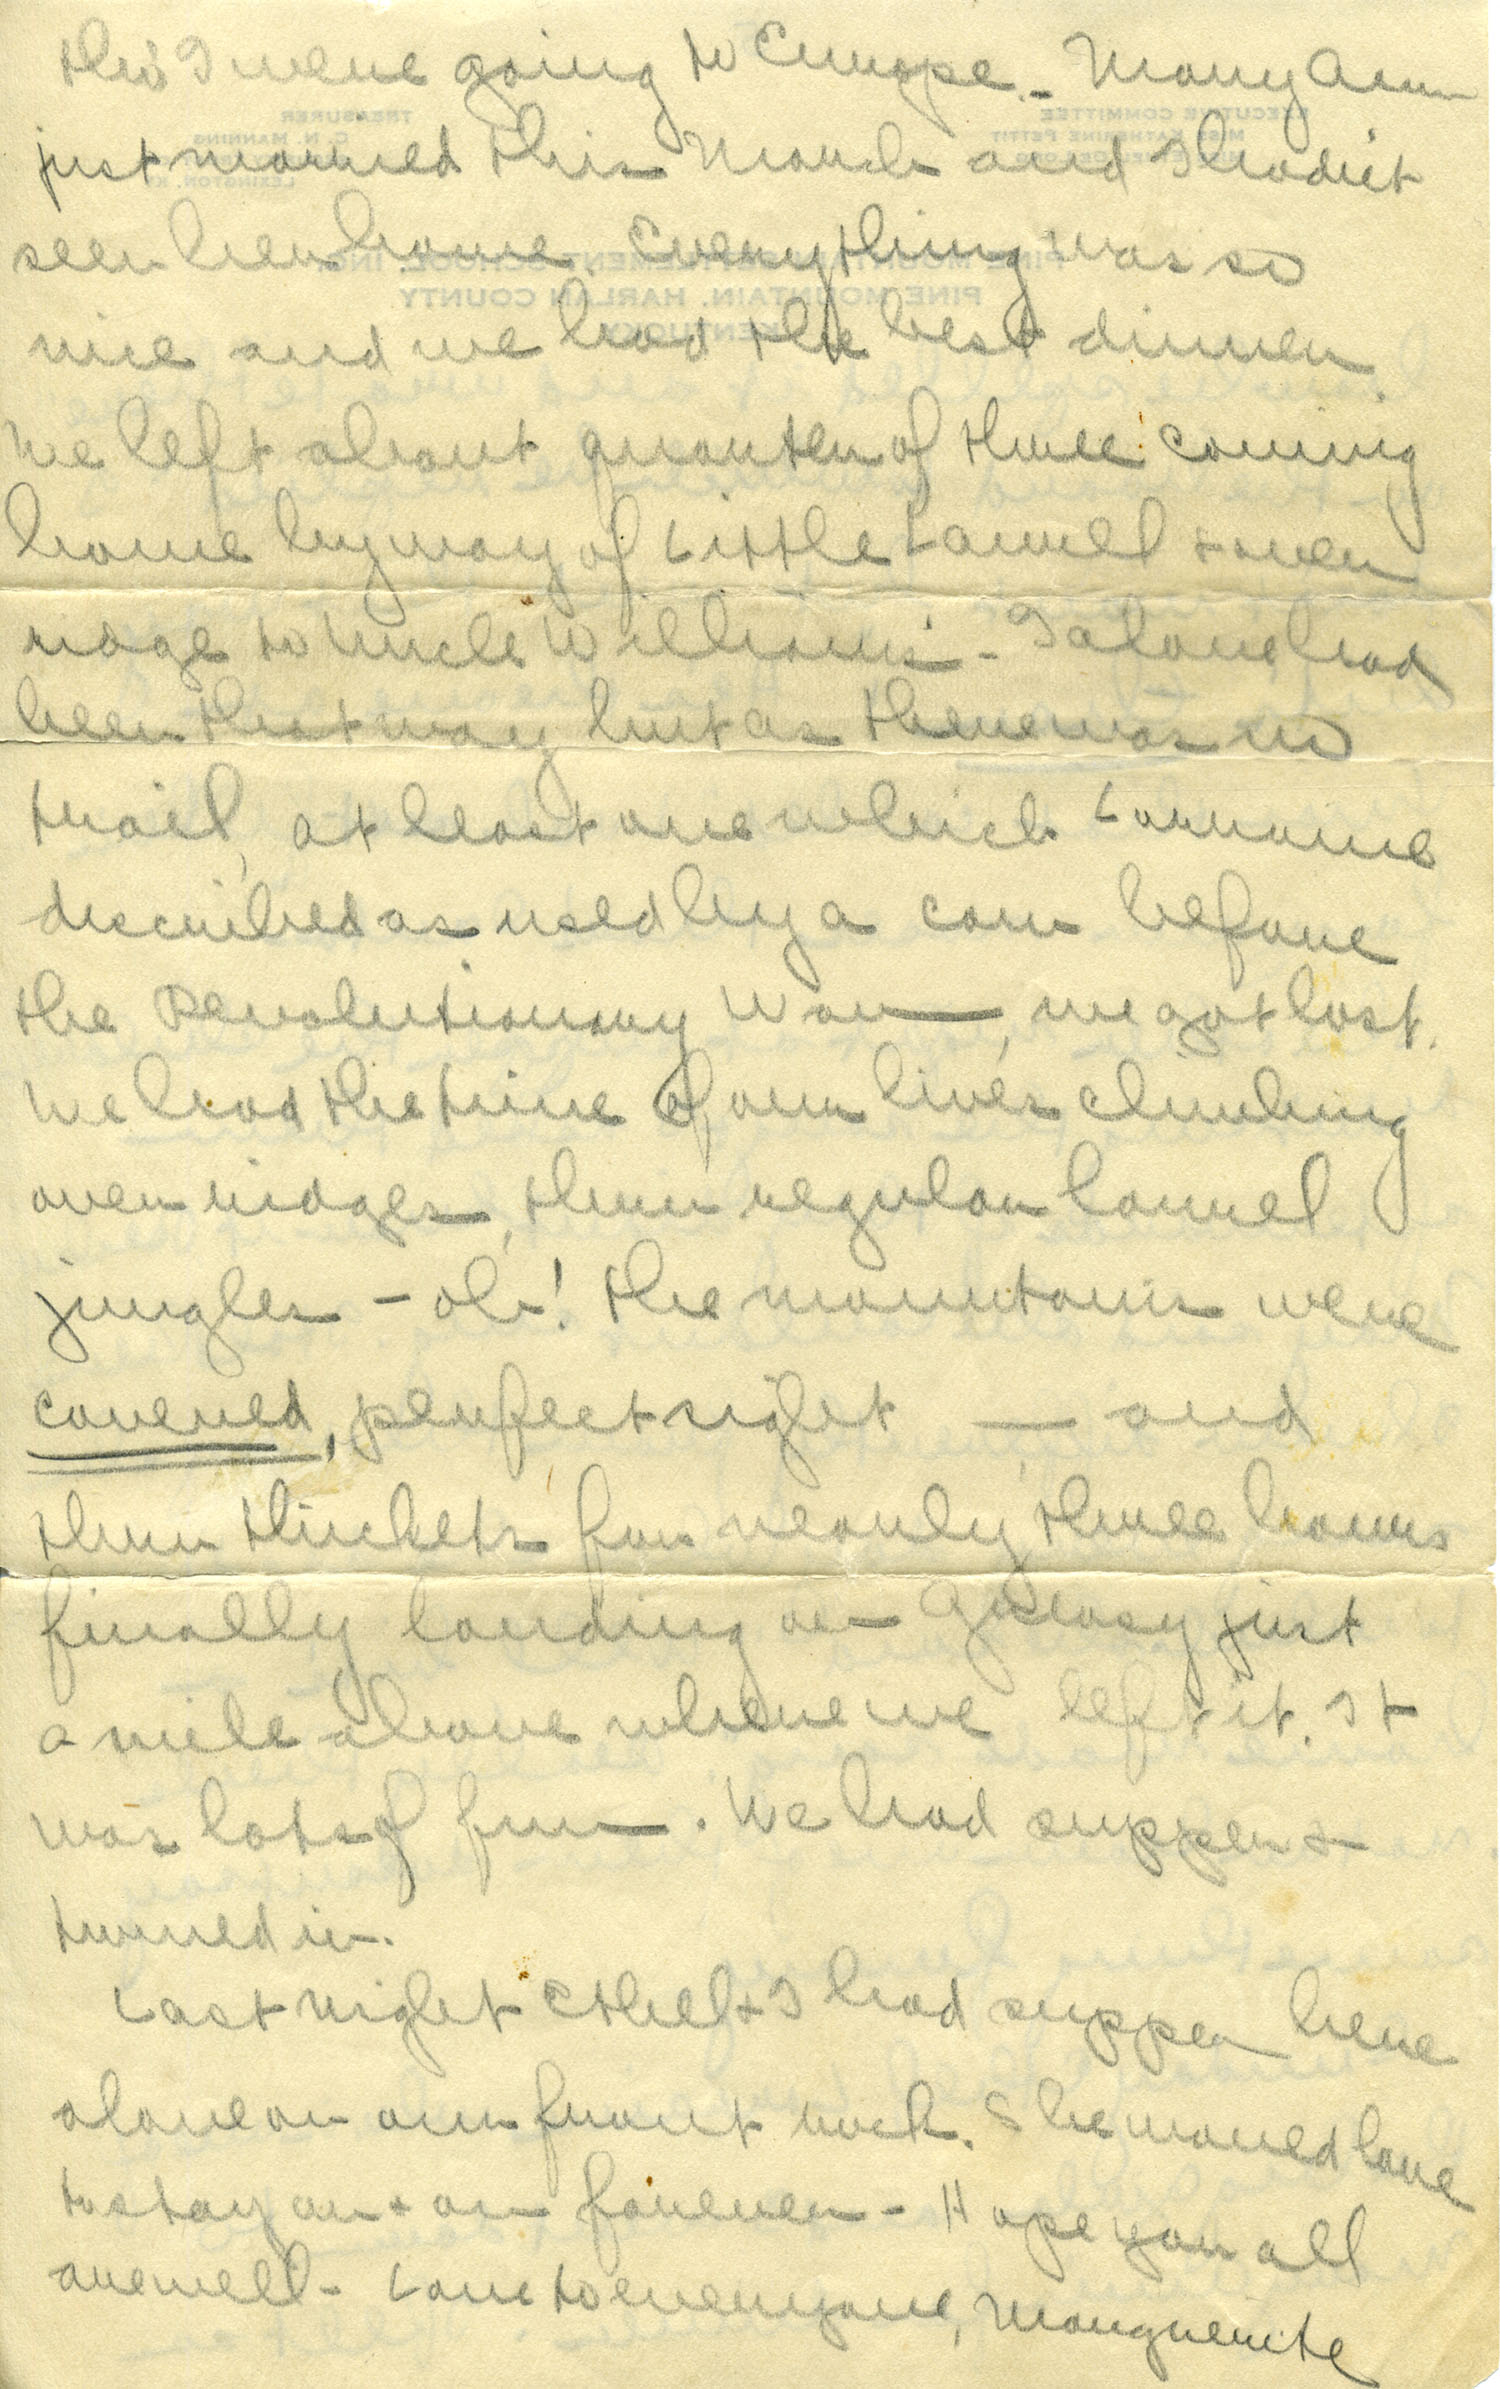 tho' I were going to Europe. - Mary Ann
just married this March and I hadn't
seen her home. Everything was so
nice and we had the best dinner.
We left about quarter of three coming
home by way of Little Laurel & over
ridge to Uncle William's - I alone had
been that way but as there was no
trail, at least one which Lorraine
described as used by a cow before
the Revolutionary War — we got lost.
We had the time of our lives climbing
over ridges, thru regular laurel
jungles - oh! the mountains were
covered, perfect sight — and
thru thickets for nearly three hours
finally landing on Greasy just
a mile above where we left it. It
was lots of fun. We had supper &
turned in.
Last night Ethel & I had supper here
alone on our front rock. She would love
to stay on & on forever - Hope you all
are well - Love to everyone, Marguerite
EXECUTIVE COMMITTEE
MISS KATHERINE PETTIT
TREASURER
C. N. MANNING
LEXINGTON, KY.
PINE MOUNTAIN SETTLEMENT SCHOOL, INC.
PINE MOUNTAIN, HARLAN COUNTY
KENTUCKY